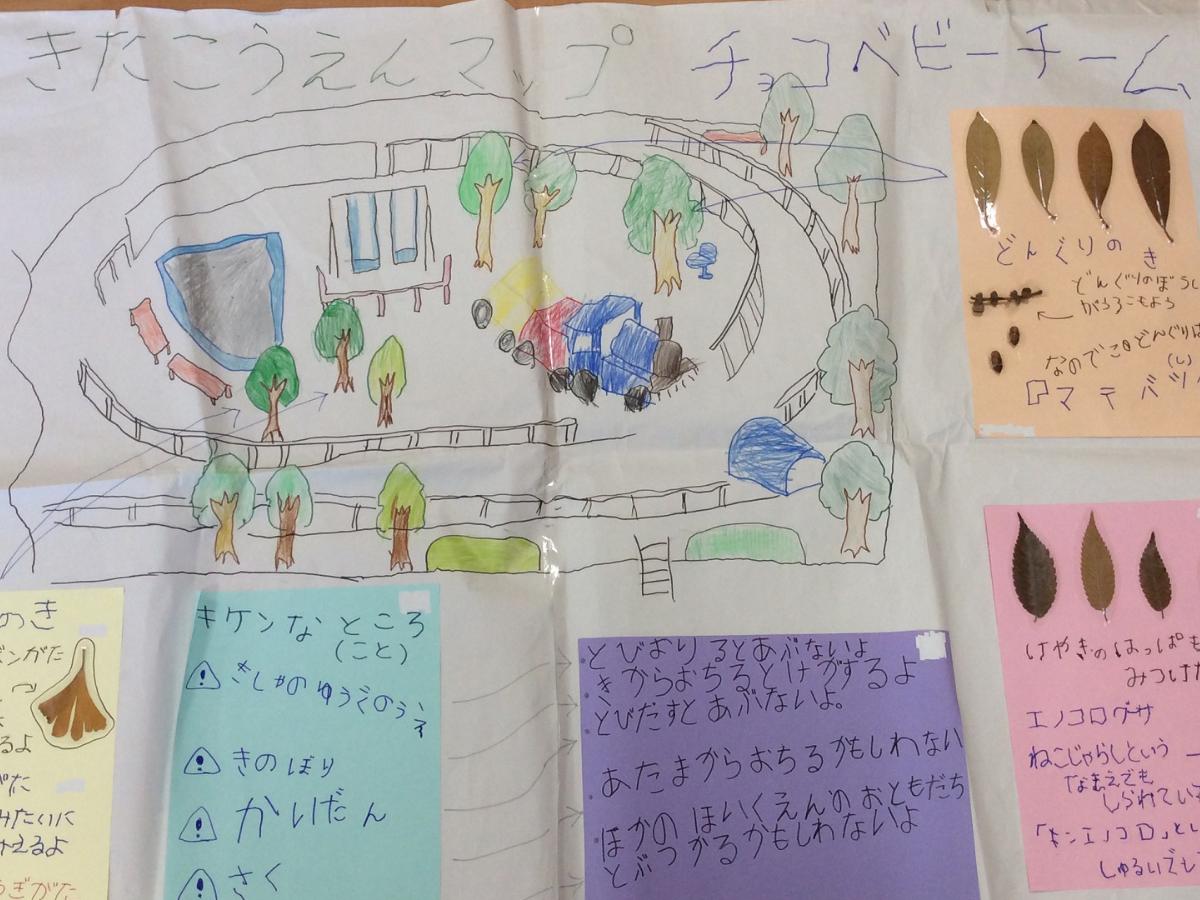 きたこうえんマップ
チョコベビーチーム
どんぐりのき
どんぐりのぼうし
がうろこもよう
なのでこのどんぐりは
(し)
マテバ
のき
がた
るよ
がた
みたいに
みえるよ
うぎがた
キケンなところ
(こと)
きしゃのゆうぐのうえ
きのぼり
かいだん
さく
とびおりるとあぶないよ
きからおちるとけがするよ
とびだすとあぶないよ。
あたまからおちるかもしわない
ほかのほいくえんのおともだち
とぶつかるかもしわないよ
けやきのはっぱも
みつけた
エノコログサ
ねこじゃらしという
なまえでも
しられている
「キンエノコロ」とい
しゅるいでし